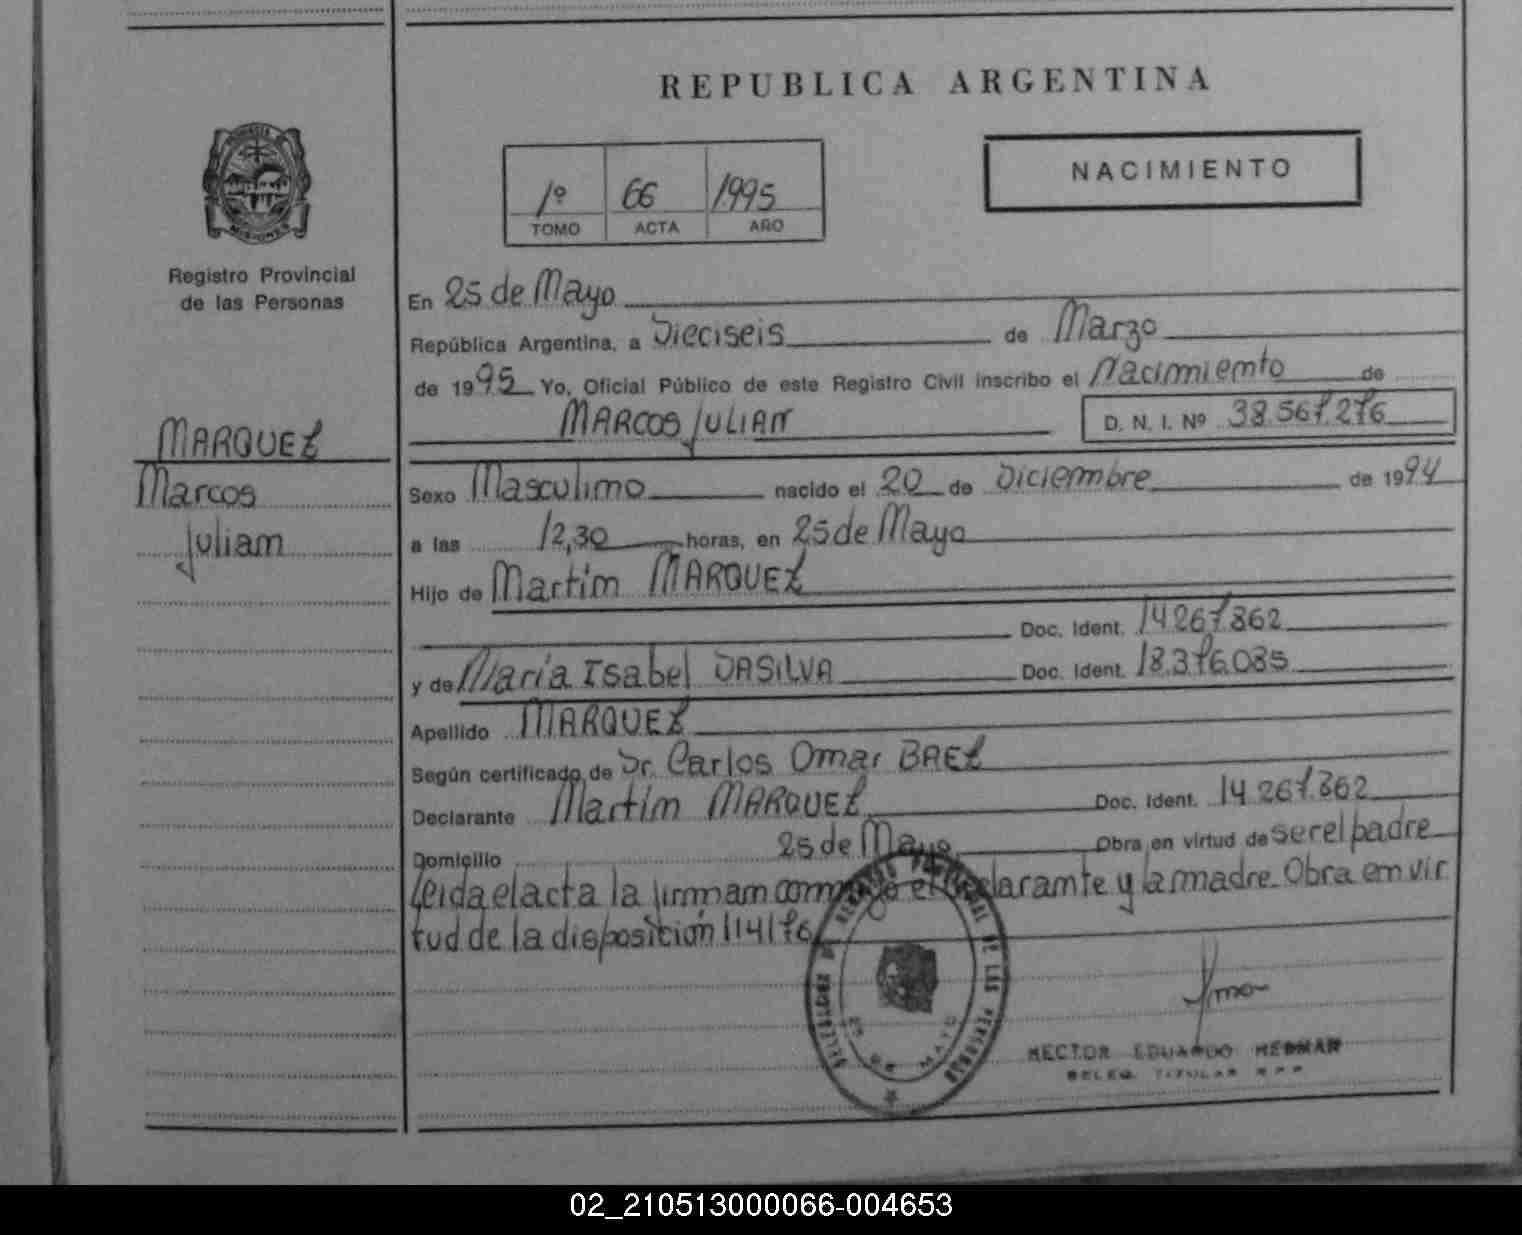 REPUBLICA ARGENTINA
NACIMIENTO
1º 66 1995
TOMO ACTA AÑO
PROVINCIA DE
MISIONES
Registro Provincial
de las Personas
MARQUEZ
Marcos
Julian
En 25 de Mayo
República Argentina, a Dieciseis de Marzo
de 1995 Yo, Oficial Público de este Registro Civil inscribo el Nacimiento de
MARCOS JULIAN D. N. I. Nº 38.567.276
Sexo Masculino nacido el 20 de Diciembre de 1994
a las 12,30 horas, en 25 de Mayo
Hijo de Martin MARQUEZ
Doc. Ident. 14.267.862
y de Maria Isabel DASILVA Doc. Ident. 18.376.085
Apellido MARQUEZ
Según certificado de Dr. Carlos Omar BAEZ
Declarante Martin MARQUEZ Doc. Ident. 14.267.862
Domicilio 25 de Mayo Obra en virtud de ser el padre
Leida el acta la firman conmigo el declarante y la madre. Obra en vir
tud de la disposición 114/76
REGISTRO PROVINCIAL DE LAS PERSONAS
25 DE MAYO
HECTOR EDUARDO
DELEG. TITULAR R P P
02_210513000066-004653